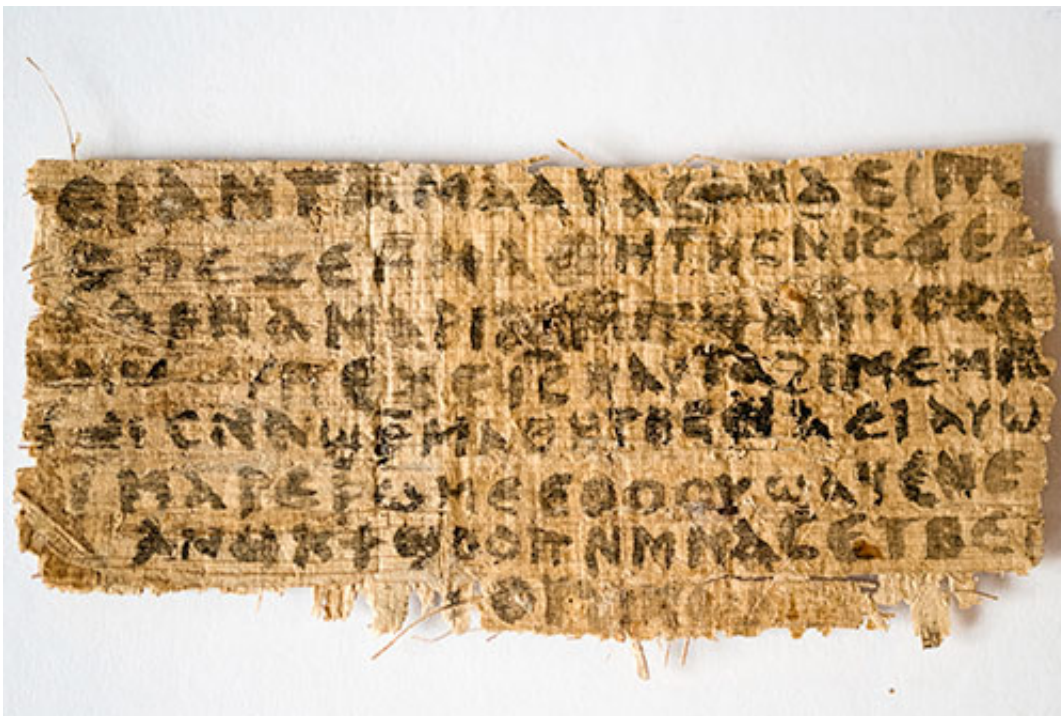 ⲉⲓ ⲁⲛ ⲧⲁⲙⲁⲁⲩ ⲁⲥϯ ⲛⲁⲉⲓ ⲡⲱ
ⲡⲉϫⲉ ⲙⲙⲁⲑⲏⲧⲏⲥ ⲛⲓⲥ ϫⲉ ⲥ
ⲁⲣⲛⲁ ⲙⲁⲣⲓⲁⲙ
ⲡⲉϫⲉ ⲓⲥ ⲛⲁⲩ ⲧⲁϩⲓⲙⲉ ⲙⲛ
ⲥⲛⲁϣⲣⲙⲁⲑⲏⲧⲏⲥ ⲛⲁⲉⲓ ⲁⲩⲱ
ⲓ ⲙⲁⲣⲉⲣⲱⲙⲉ ⲉⲑⲟⲟⲩ ϣⲁϥⲉ ⲛⲉ
ⲁⲛⲟⲕ ϯϣⲟⲟⲡ ⲛⲙⲙⲁⲥ ⲉⲧⲃⲉ